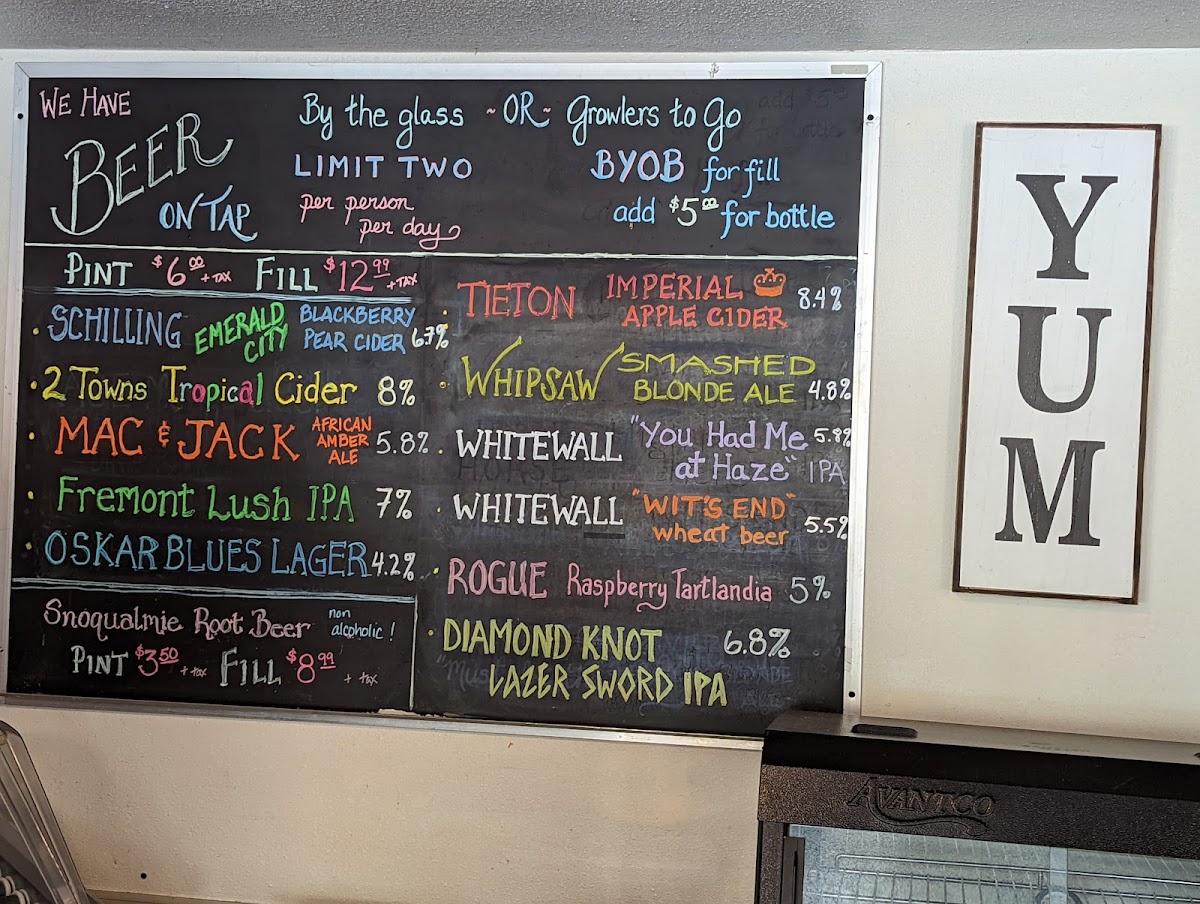 WE HAVE
BEER
ON TAP
By the glass ~OR~ Growlers to Go
LIMIT TWO
per person
per day
BYOB for fill
add $5.00 for bottle
PINT $6.00 + TAX FILL $12.99 + TAX
• SCHILLING EMERALD CITY BLACKBERRY PEAR CIDER 6.7%
• 2 Towns Tropical Cider 8%
• MAC & JACK AFRICAN AMBER ALE 5.8%
• Fremont Lush IPA 7%
• OSKAR BLUES LAGER 4.2%
Snoqualmie Root Beer non alcoholic!
PINT $3.50 + tax FILL $8.99 + tax
• TIETON IMPERIAL APPLE CIDER 8.4%
• WHIPSAW SMASHED BLONDE ALE 4.8%
• WHITEWALL "You Had Me at Haze" IPA 5.8%
• WHITEWALL "WIT'S END" wheat beer 5.5%
• ROGUE Raspberry Tartlandia 5%
• DIAMOND KNOT 6.8%
LAZER SWORD IPA
YUM
AVANTCO